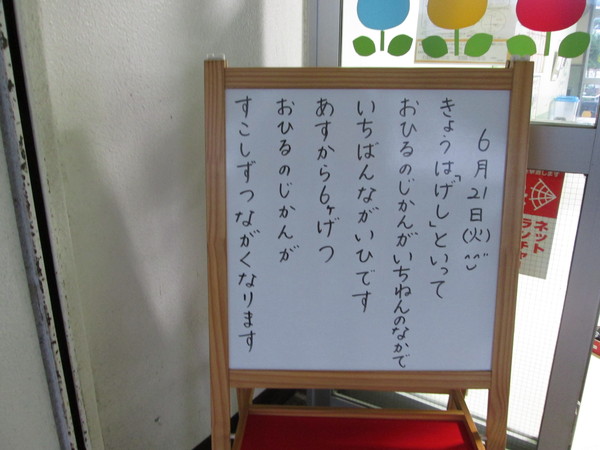 6月21日(火)
きょうは「げし」といって
おひるのじかんがいちねんのなかで
いちばんながいひです
あすから6ヶげつ
おひるのじかんが
すこしずつながくなります
ネット
ランチャ